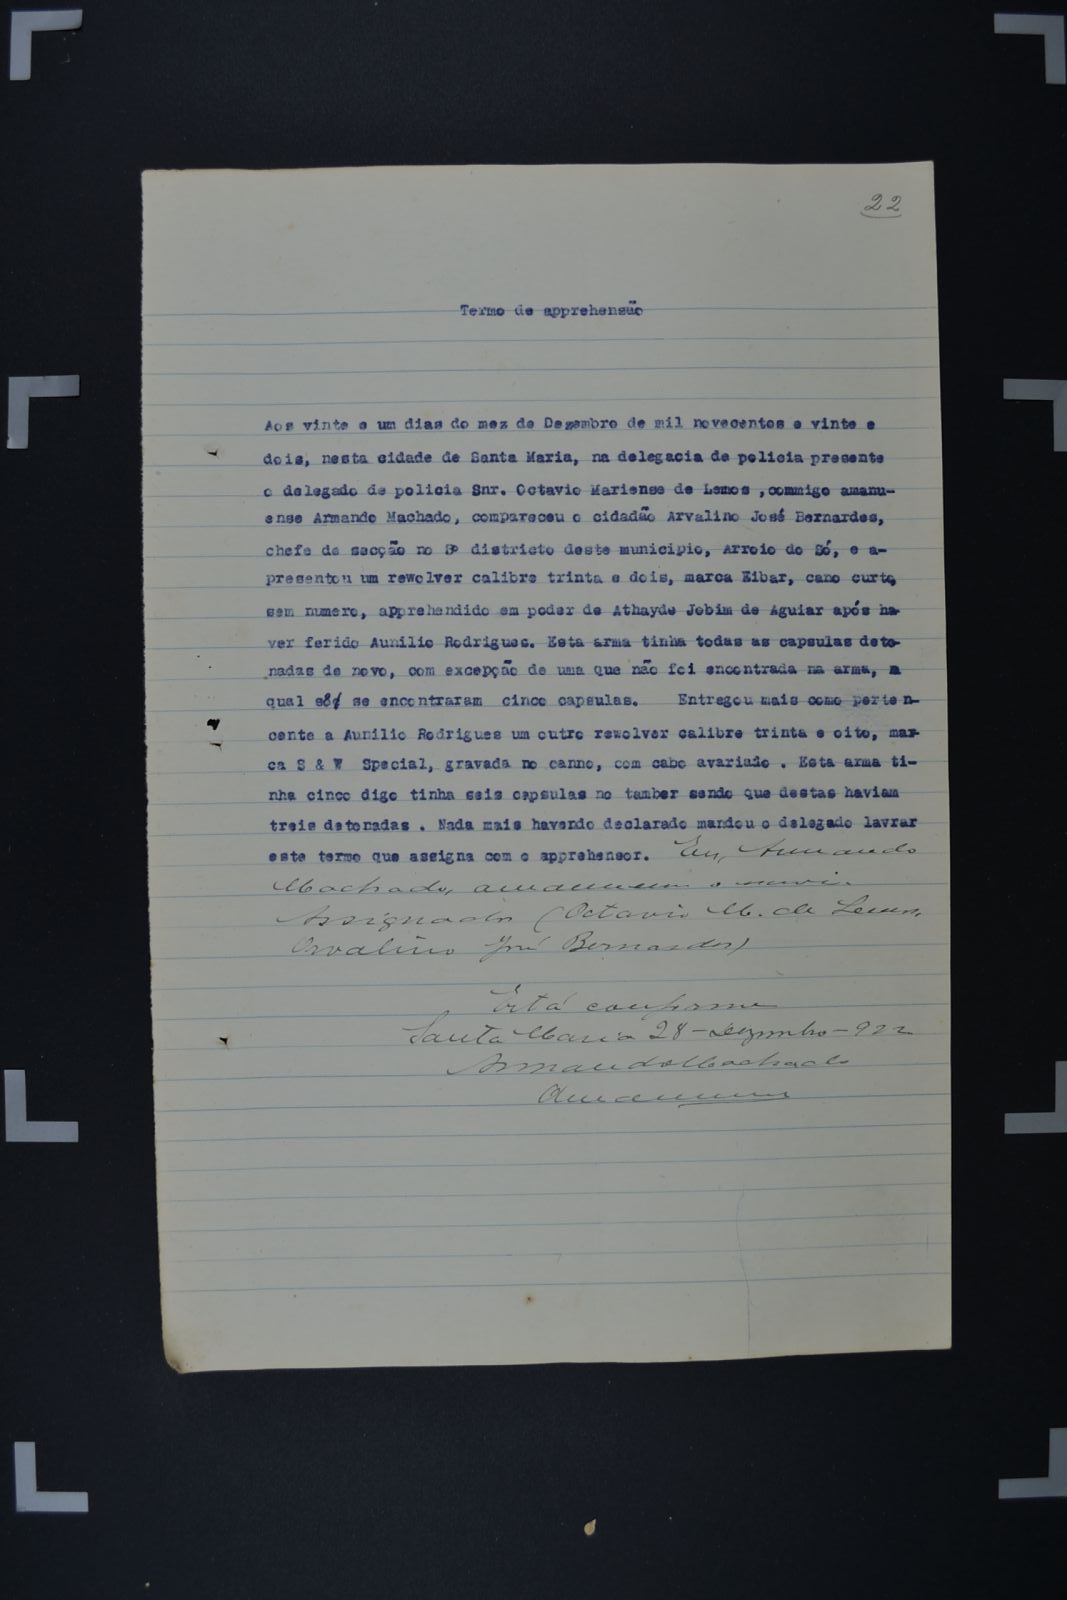 22
Termo de apprehensão
Aos vinte e um dias do mez de Dezembro de mil novecentos e vinte e
dois, nesta cidade de Santa Maria, na delegacia de policia presente
o delegado de policia Snr. Octavio Mariense de Lemos ,commigo amanu-
ense Armando Machado, compareceu o cidadão Arvalino José Bernardes,
chefe de secção no 5º districto deste municipio, Arroio do Só, e a-
presentou um rewolver calibre trinta e dois, marca Eibar, cano curto,
sem numero, apprehendido em poder de Athayde Jobim de Aguiar após ha-
ver ferido Aunilio Rodrigues. Esta arma tinha todas as capsulas deto-
nadas de novo, com excepção de uma que não foi encontrada na arma, a
qual só se encontraram cinco capsulas. Entregou mais como perten-
cente a Aunilio Rodrigues um outro rewolver calibre trinta e oito, mar-
ca S & W Special, gravada no canno, com cabo avariado . Esta arma ti-
nha cinco digo tinha seis capsulas no tamber sendo que destas haviam
treis detonadas . Nada mais havendo declarado mandou o delegado lavrar
este termo que assigna com o apprehensor. Eu, Armando
Machado, amanuense o escrevi.
Assignados (Octavio M. de Lemos,
Orvalino José Bernardes)
Está conforme
Santa Maria 28-Dezembro-922
Armando Machado
Amanuense